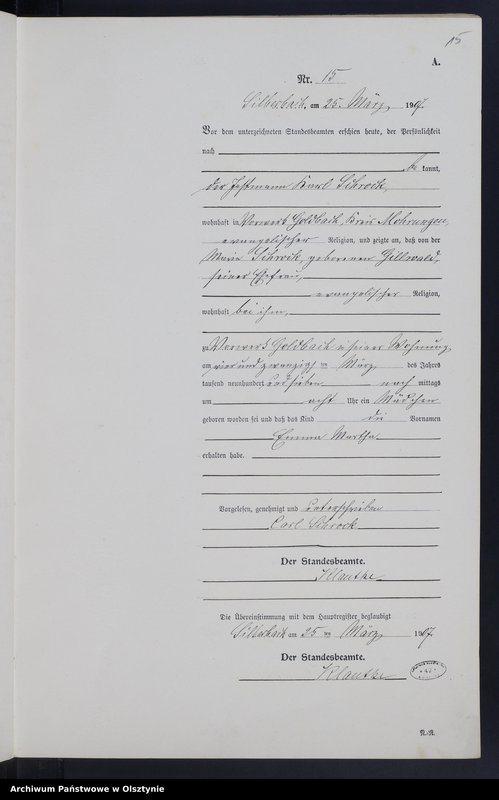 15
A.
Nr. 15
Silberbach, am 25. März 1907.
Vor dem unterzeichneten Standesbeamten erschien heute, der Persönlichkeit
nach
be kannt,
der Instmann Karl Schrock,
wohnhaft in Vorwerk Goldbach, Kreis Mohrungen,
evangelischer Religion, und zeigte an, daß von der
Marie Schrock, geborenen Gillwald,
seiner Ehefrau,
evangelischer Religion,
wohnhaft bei ihm,
zu Vorwerk Goldbach in seiner Wohnung
am vier und zwanzigsten März des Jahres
tausend neunhundert und sieben nach mittags
um acht Uhr ein Mädchen
geboren worden sei und daß das Kind die Vornamen
Emma Martha
erhalten habe.
Vorgelesen, genehmigt und unterschrieben
Carl Schrock
Der Standesbeamte.
Klautke
Die Übereinstimmung mit dem Hauptregister beglaubigt
Silberbach am 25 ten März 1907.
Der Standesbeamte.
Klautke
Archiwum Państwowe w Olsztynie